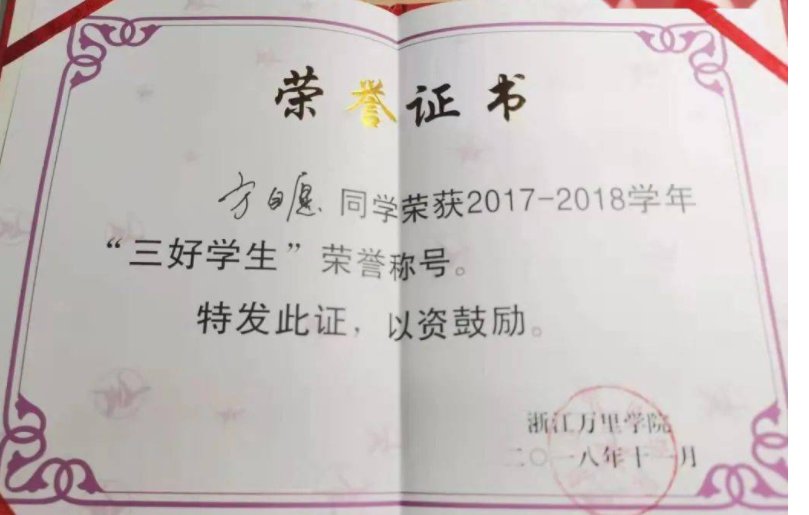 荣誉证书
方自愿 同学荣获2017-2018学年
“三好学生”荣誉称号。
特发此证，以资鼓励。
浙江万里学院
二〇一八年十一月